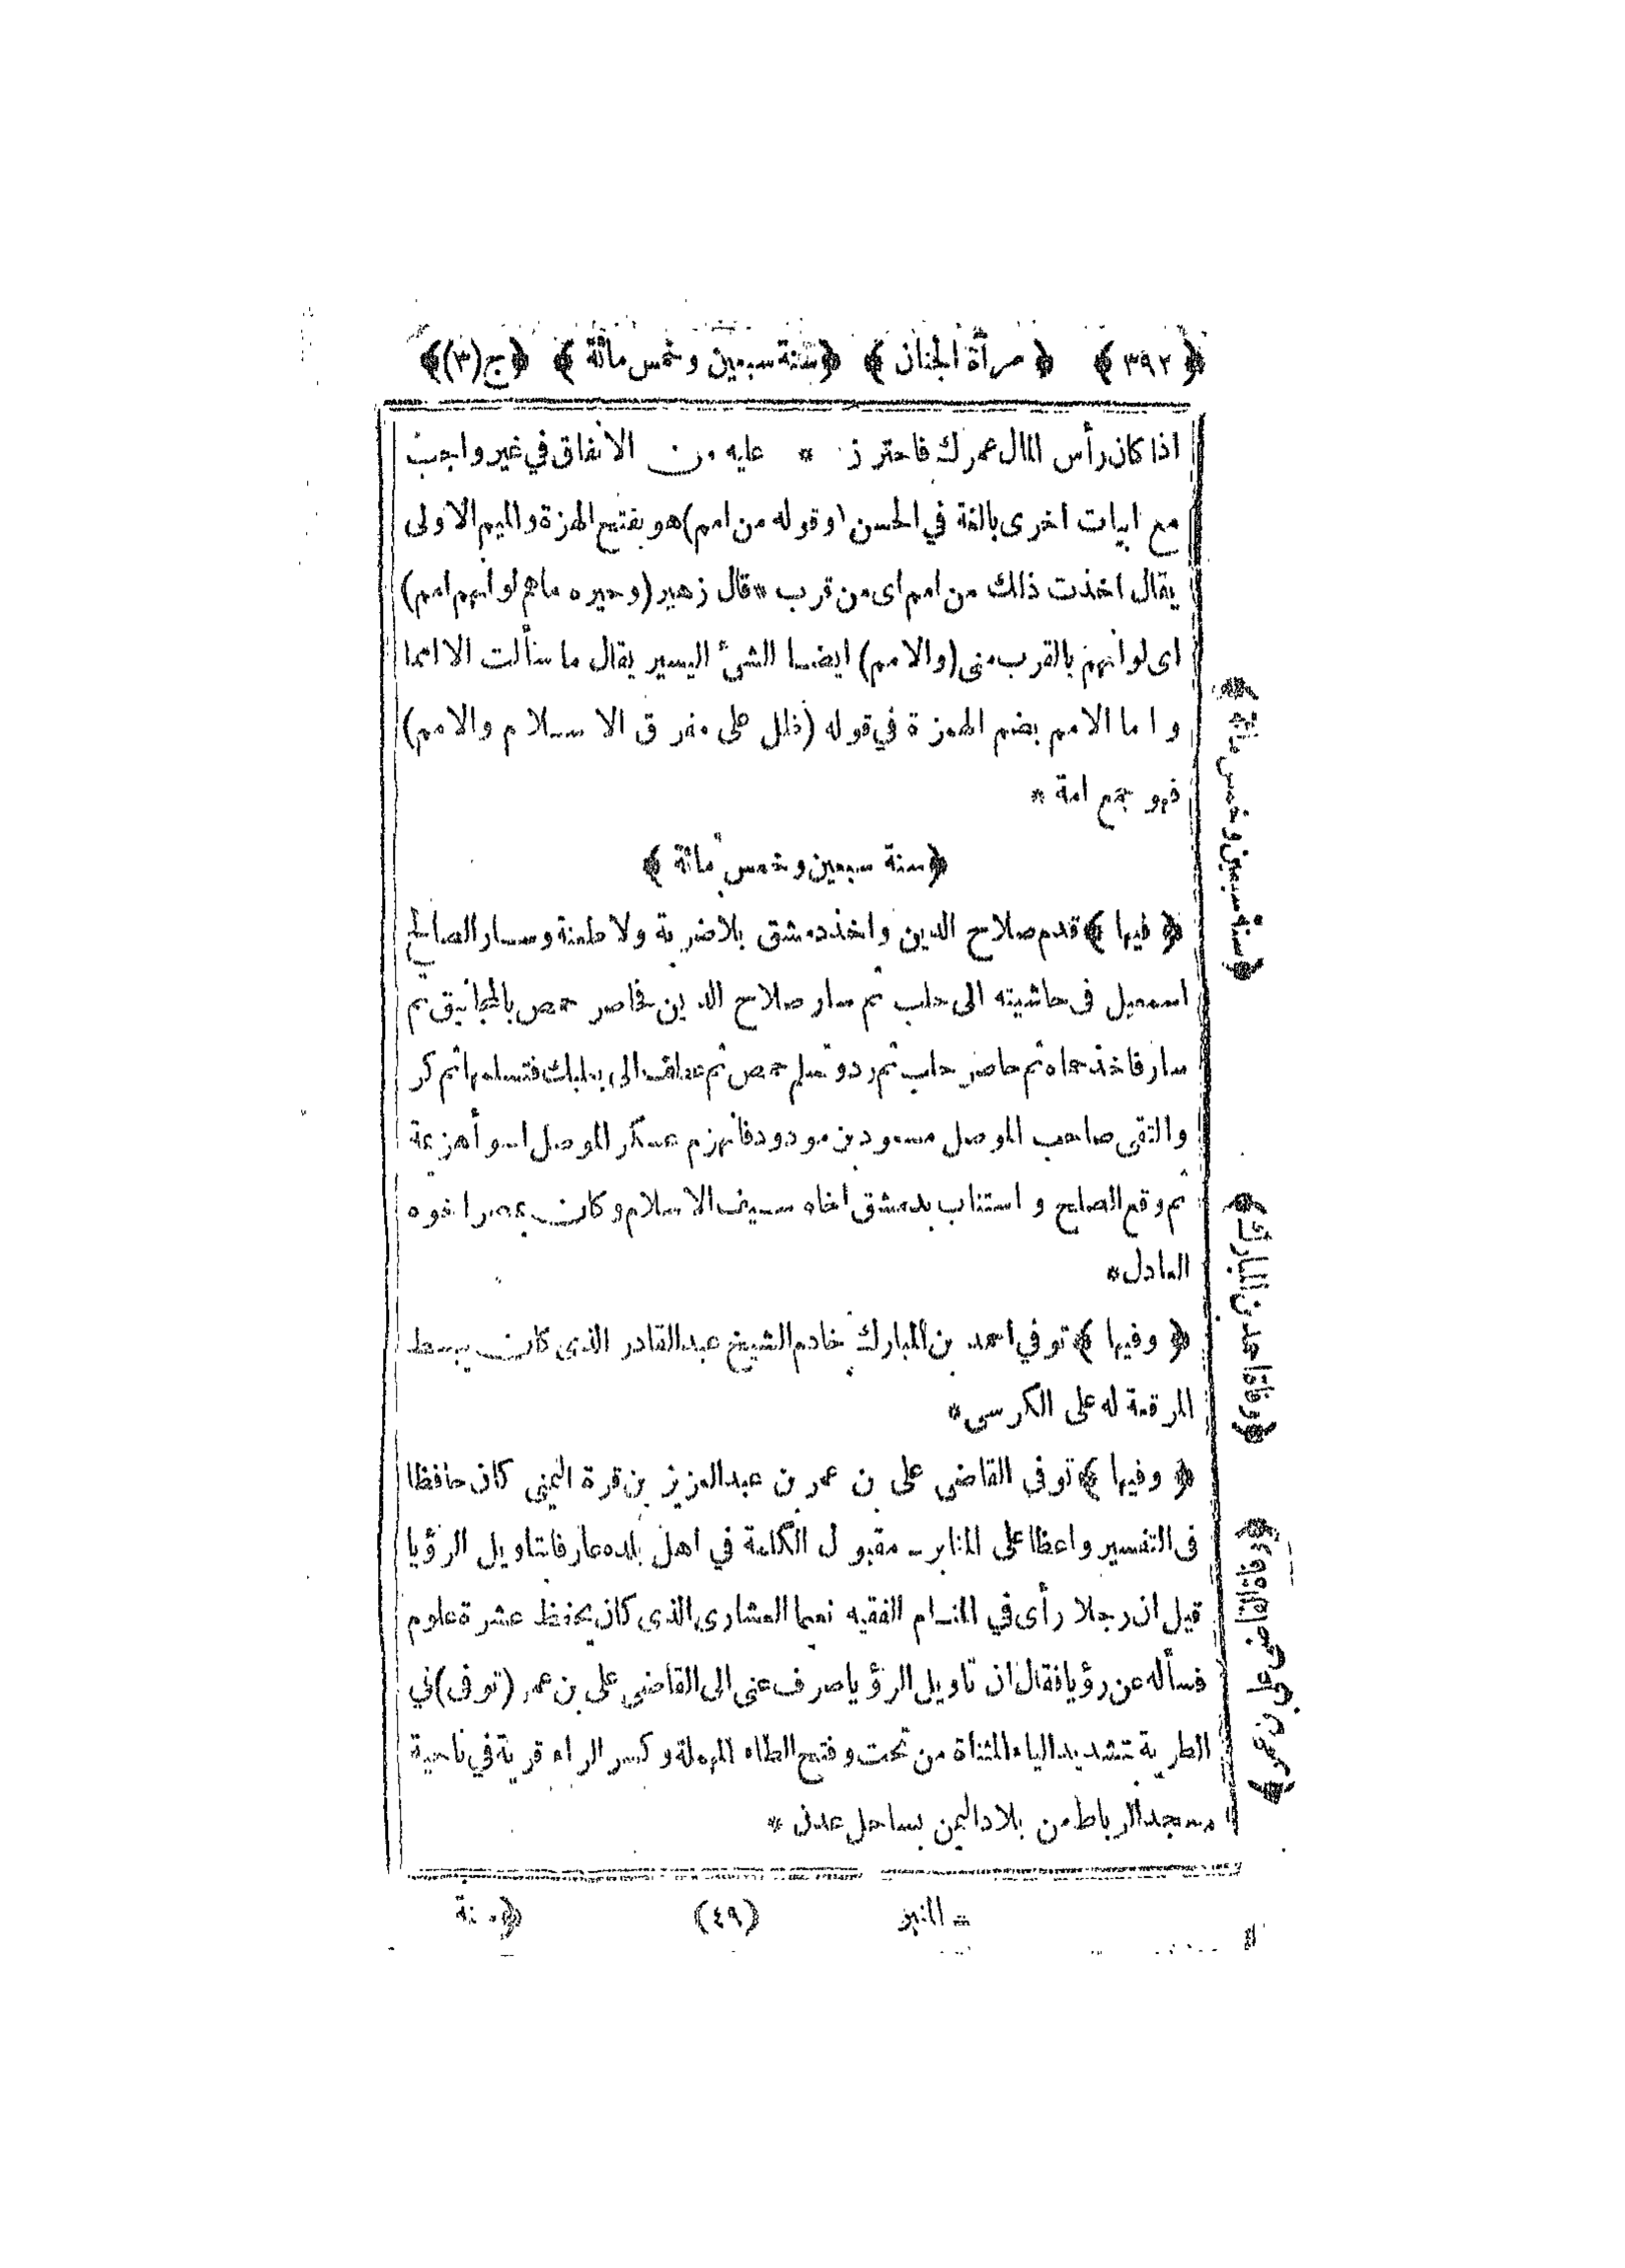 ﴿ ٣٩٢ ﴾ ﴿ مرآة الجنان ﴾ ﴿ سنة سبعين وخمس مائة ﴾ ﴿ ج (٣) ﴾
اذا كان رأس المال عمرك فاحترز * عليه من الانفاق في غير واجب
مع ابيات اخرى بالغة في الحسن (وقوله من امم) هو بفتح الهمزة والميم الاولى
يقال اخذت ذلك من امم اى من قرب * قال زهير (وجيره ماهم لو انهم امم)
اى لو انهم بالقرب منى (والامم) ايضا الشئ اليسير يقال ما سألت الا امما
واما الامم بضم الهمزة في قوله (ظل على مفرق الاسلام والامم)
فهو جمع امة *
﴿ سنة سبعين وخمس مائة ﴾
﴿ فيها ﴾ قدم صلاح الدين واخذ دمشق بلا ضربة ولا طعنة وسار الصالح
اسمعيل فى حاشيته الى حلب ثم سار صلاح الدين فحاصر حمص بالمجانيق ثم
سار فاخذ حماه ثم حاصر حلب ثم رد وتسلم حمص ثم عطف الى بعلبك فتسلمها ثم كر
والتقى صاحب الموصل مسعود بن مودود فانهزم عسكر الموصل اسوأ هزيمة
ثم وقع الصلح و استناب بدمشق اخاه سيف الاسلام وكان بمصر اخوه
العادل *
﴿ وفيها ﴾ توفي احمد بن المبارك خادم الشيخ عبد القادر الذى كان يبسط
المرقعة له على الكرسى *
﴿ وفيها ﴾ توفي القاضى على بن عمر بن عبد العزيز بن قرة اليمنى كان حافظا
فى التفسير واعظا على المنابر مقبول الكلمة في اهل بلده عارفا بتاويل الرؤيا
قيل ان رجلا رأى في المنام الفقيه نعيما العشارى الذى كان يحفظ عشرة علوم
فسأله عن رؤيا فقال ان تاويل الرؤيا صرف عنى الى القاضى على بن عمر (توفى) في
الطرية بتشديد الياء المثناة من تحت وفتح الطاء المهملة وكسر الراء قرية في ناحية
مسجد الرباط من بلاد اليمن بساحل عدن *
﴿ سنة سبعين وخمس مائة ﴾
﴿ وفاة احمد بن المبارك ﴾
﴿ وفاة القاضى على بن عمر ﴾
(٤٩)
﴿ سنة